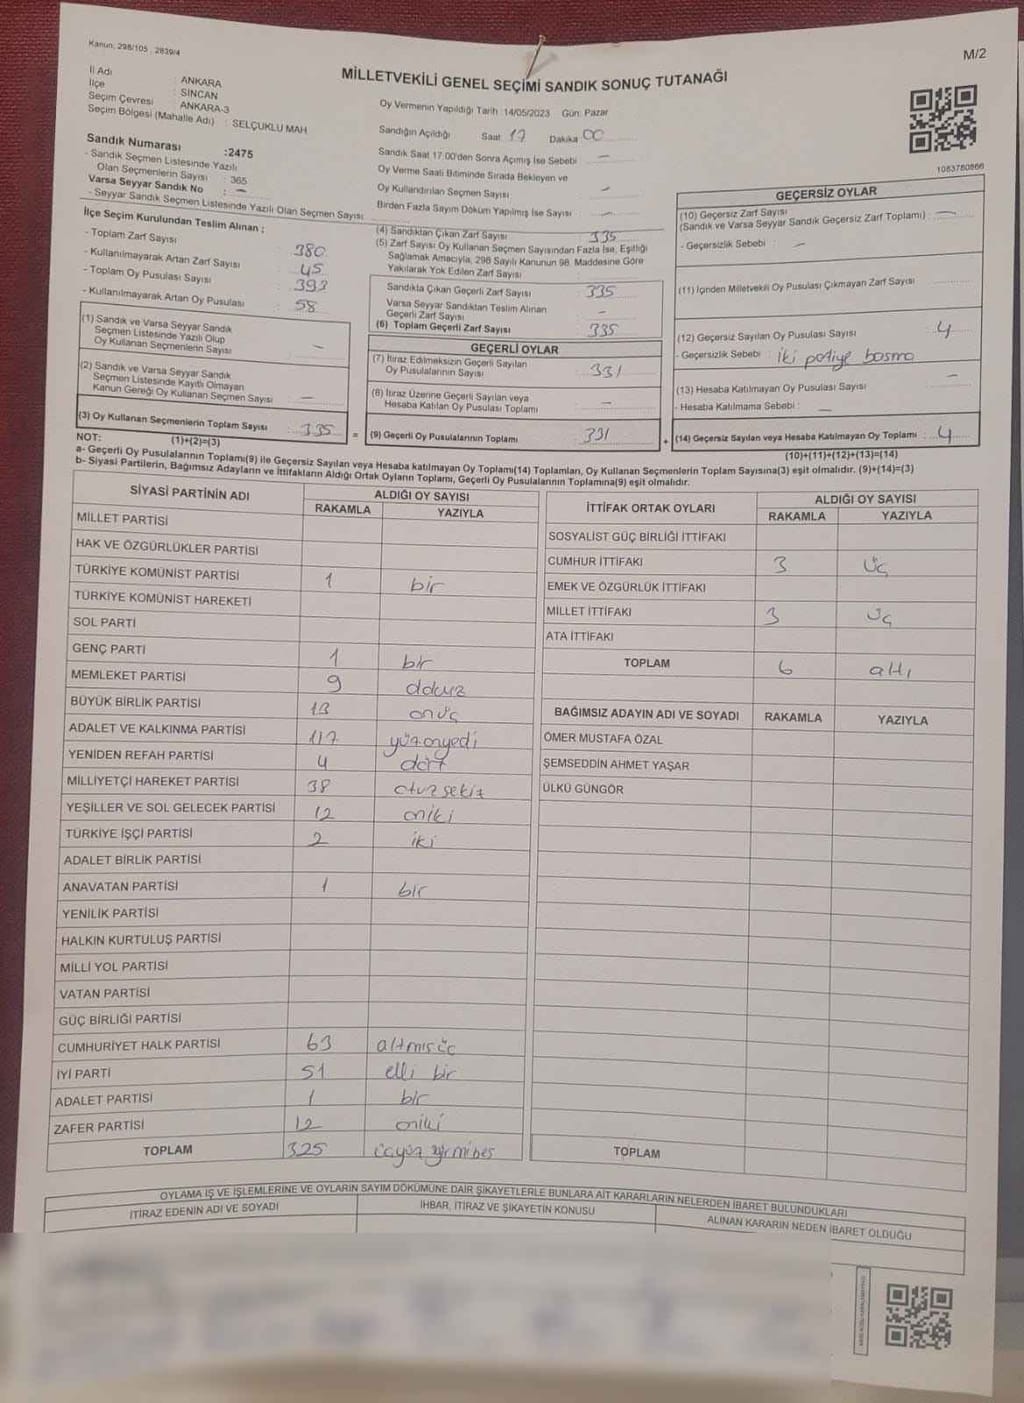 Kanun: 298/105 , 2839/4
M/2
MİLLETVEKİLİ GENEL SEÇİMİ SANDIK SONUÇ TUTANAĞI
İl Adı : ANKARA
İlçe : SİNCAN
Seçim Çevresi : ANKARA-3
Seçim Bölgesi (Mahalle Adı) : SELÇUKLU MAH
Sandık Numarası :2475
- Sandık Seçmen Listesinde Yazılı
Olan Seçmenlerin Sayısı : 365
Varsa Seyyar Sandık No : -
- Seyyar Sandık Seçmen Listesinde Yazılı Olan Seçmen Sayısı
Oy Vermenin Yapıldığı Tarih :14/05/2023 Gün: Pazar
Sandığın Açıldığı Saat 17 Dakika 00
Sandık Saat 17:00'den Sonra Açımış İse Sebebi -
Oy Verme Saati Bitiminde Sırada Bekleyen ve
Oy Kullandırılan Seçmen Sayısı -
Birden Fazla Sayım Döküm Yapılmış İse Sayısı -
1083780866
İlçe Seçim Kurulundan Teslim Alınan ;
- Toplam Zarf Sayısı : 380
- Kullanılmayarak Artan Zarf Sayısı : 45
- Toplam Oy Pusulası Sayısı : 393
- Kullanılmayarak Artan Oy Pusulası : 58
(1) Sandık ve Varsa Seyyar Sandık
Seçmen Listesinde Yazılı Olup
Oy Kullanan Seçmenlerin Sayısı : -
(2) Sandık ve Varsa Seyyar Sandık
Seçmen Listesinde Kayıtlı Olmayan
Kanun Gereği Oy Kullanan Seçmen Sayısı : -
(3) Oy Kullanan Seçmenlerin Toplam Sayısı : 335
(1)+(2)=(3)
(4) Sandıktan Çıkan Zarf Sayısı : 335
(5) Zarf Sayısı Oy Kullanan Seçmen Sayısından Fazla İse, Eşitliği
Sağlamak Amacıyla, 298 Sayılı Kanunun 98. Maddesine Göre
Yakılarak Yok Edilen Zarf Sayısı :
Sandıkla Çıkan Geçerli Zarf Sayısı : 335
Varsa Seyyar Sandıktan Teslim Alınan
Geçerli Zarf Sayısı : -
(6) Toplam Geçerli Zarf Sayısı : 335
GEÇERLİ OYLAR
(7) İtiraz Edilmeksizin Geçerli Sayılan
Oy Pusulalarının Sayısı : 331
(8) İtiraz Üzerine Geçerli Sayılan veya
Hesaba Katılan Oy Pusulası Toplamı : -
= (9) Geçerli Oy Pusulalarının Toplamı : 331
GEÇERSİZ OYLAR
(10) Geçersiz Zarf Sayısı
(Sandık ve Varsa Seyyar Sandık Geçersiz Zarf Toplamı) : -
- Geçersizlik Sebebi : -
(11) İçinden Milletvekili Oy Pusulası Çıkmayan Zarf Sayısı
(12) Geçersiz Sayılan Oy Pusulası Sayısı : 4
- Geçersizlik Sebebi : iki partiye basma
(13) Hesaba Katılmayan Oy Pusulası Sayısı : -
- Hesaba Katılmama Sebebi : -
+ (14) Geçersiz Sayılan veya Hesaba Katılmayan Oy Toplamı : 4
(10)+(11)+(12)+(13)=(14)
NOT:
a- Geçerli Oy Pusulalarının Toplamı(9) ile Geçersiz Sayılan veya Hesaba katılmayan Oy Toplamı(14) Toplamları, Oy Kullanan Seçmenlerin Toplam Sayısına(3) eşit olmalıdır. (9)+(14)=(3)
b- Siyasi Partilerin, Bağımsız Adayların ve İttifakların Aldığı Ortak Oyların Toplamı, Geçerli Oy Pusulalarının Toplamına(9) eşit olmalıdır.
SİYASİ PARTİNİN ADI ALDIĞI OY SAYISI
RAKAMLA YAZIYLA
MİLLET PARTİSİ
HAK VE ÖZGÜRLÜKLER PARTİSİ
TÜRKİYE KOMÜNİST PARTİSİ 1 bir
TÜRKİYE KOMÜNİST HAREKETİ
SOL PARTİ
GENÇ PARTİ 1 bir
MEMLEKET PARTİSİ 9 dokuz
BÜYÜK BİRLİK PARTİSİ 13 onüç
ADALET VE KALKINMA PARTİSİ 117 yüzonyedi
YENİDEN REFAH PARTİSİ 4 dört
MİLLİYETÇİ HAREKET PARTİSİ 38 otuzsekiz
YEŞİLLER VE SOL GELECEK PARTİSİ 12 oniki
TÜRKİYE İŞÇİ PARTİSİ 2 iki
ADALET BİRLİK PARTİSİ
ANAVATAN PARTİSİ 1 bir
YENİLİK PARTİSİ
HALKIN KURTULUŞ PARTİSİ
MİLLİ YOL PARTİSİ
VATAN PARTİSİ
GÜÇ BİRLİĞİ PARTİSİ
CUMHURİYET HALK PARTİSİ 63 altmışüç
İYİ PARTİ 51 elli bir
ADALET PARTİSİ 1 bir
ZAFER PARTİSİ 12 oniki
TOPLAM 325 üçyüz yirmibeş
İTTİFAK ORTAK OYLARI ALDIĞI OY SAYISI
RAKAMLA YAZIYLA
SOSYALİST GÜÇ BİRLİĞİ İTTİFAKI
CUMHUR İTTİFAKI 3 üç
EMEK VE ÖZGÜRLÜK İTTİFAKI
MİLLET İTTİFAKI 3 üç
ATA İTTİFAKI
TOPLAM 6 altı
BAĞIMSIZ ADAYIN ADI VE SOYADI RAKAMLA YAZIYLA
ÖMER MUSTAFA ÖZAL
ŞEMSEDDİN AHMET YAŞAR
ÜLKÜ GÜNGÖR
TOPLAM
OYLAMA İŞ VE İŞLEMLERİNE VE OYLARIN SAYIM DÖKÜMÜNE DAİR ŞİKAYETLERLE BUNLARA AİT KARARLARIN NELERDEN İBARET BULUNDUKLARI
İTİRAZ EDENİN ADI VE SOYADI İHBAR, İTİRAZ VE ŞİKAYETİN KONUSU ALINAN KARARIN NEDEN İBARET OLDUĞU